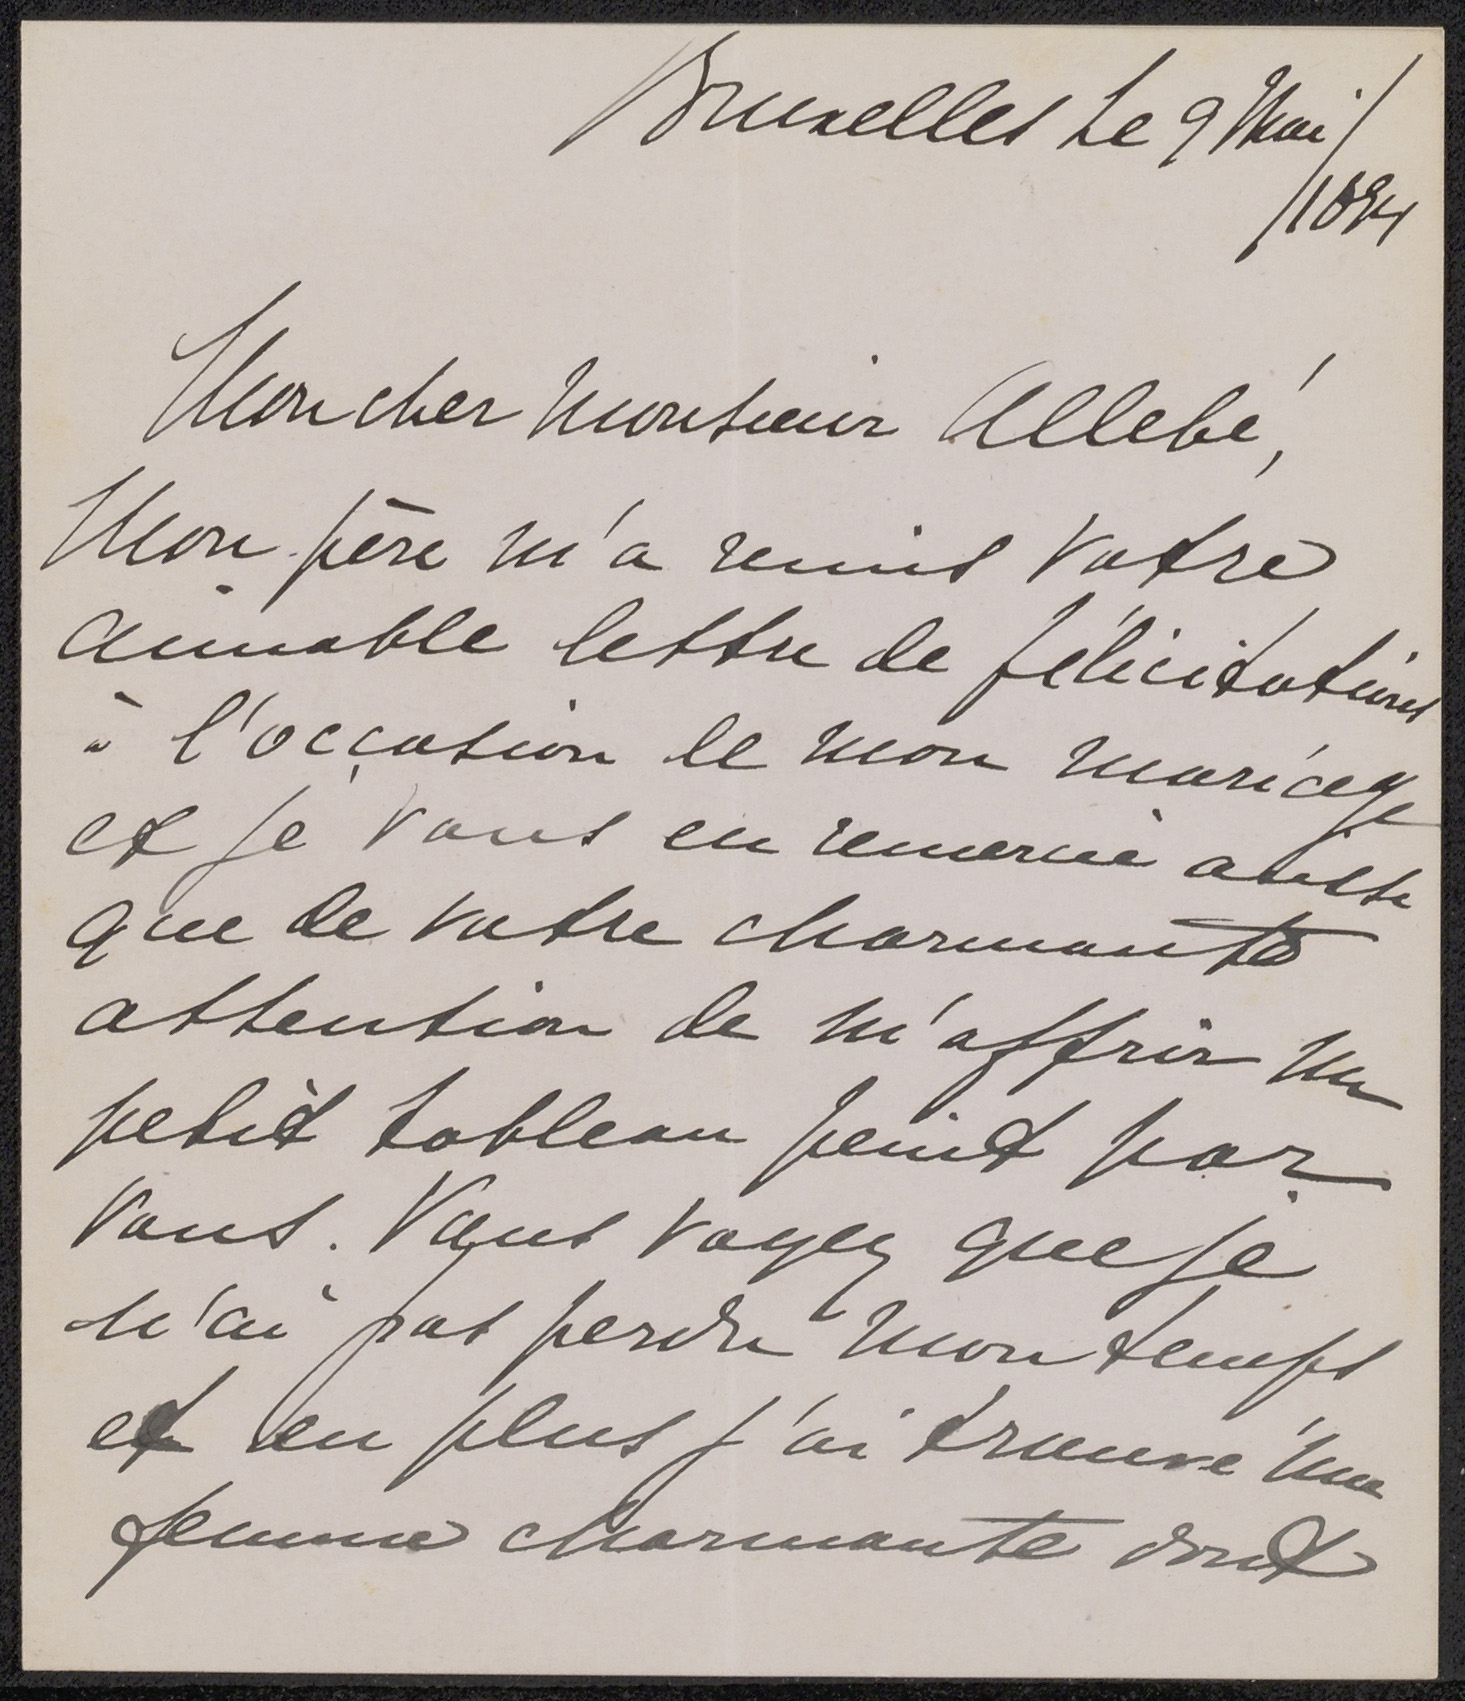 Bruxelles Le 9 Mai/
/1894
Mon cher Monsieur Allebé,
Mon père m'a remis votre
aimable lettre de félicitations
à l'occasion de mon mariage
et je vous en remercie aussi
que de votre charmante
attention de m'offrir un
petit tableau peint par
vous. Vous voyez que je
n'ai pas perdu mon temps
et en plus j'ai trouvé une
femme charmante dont